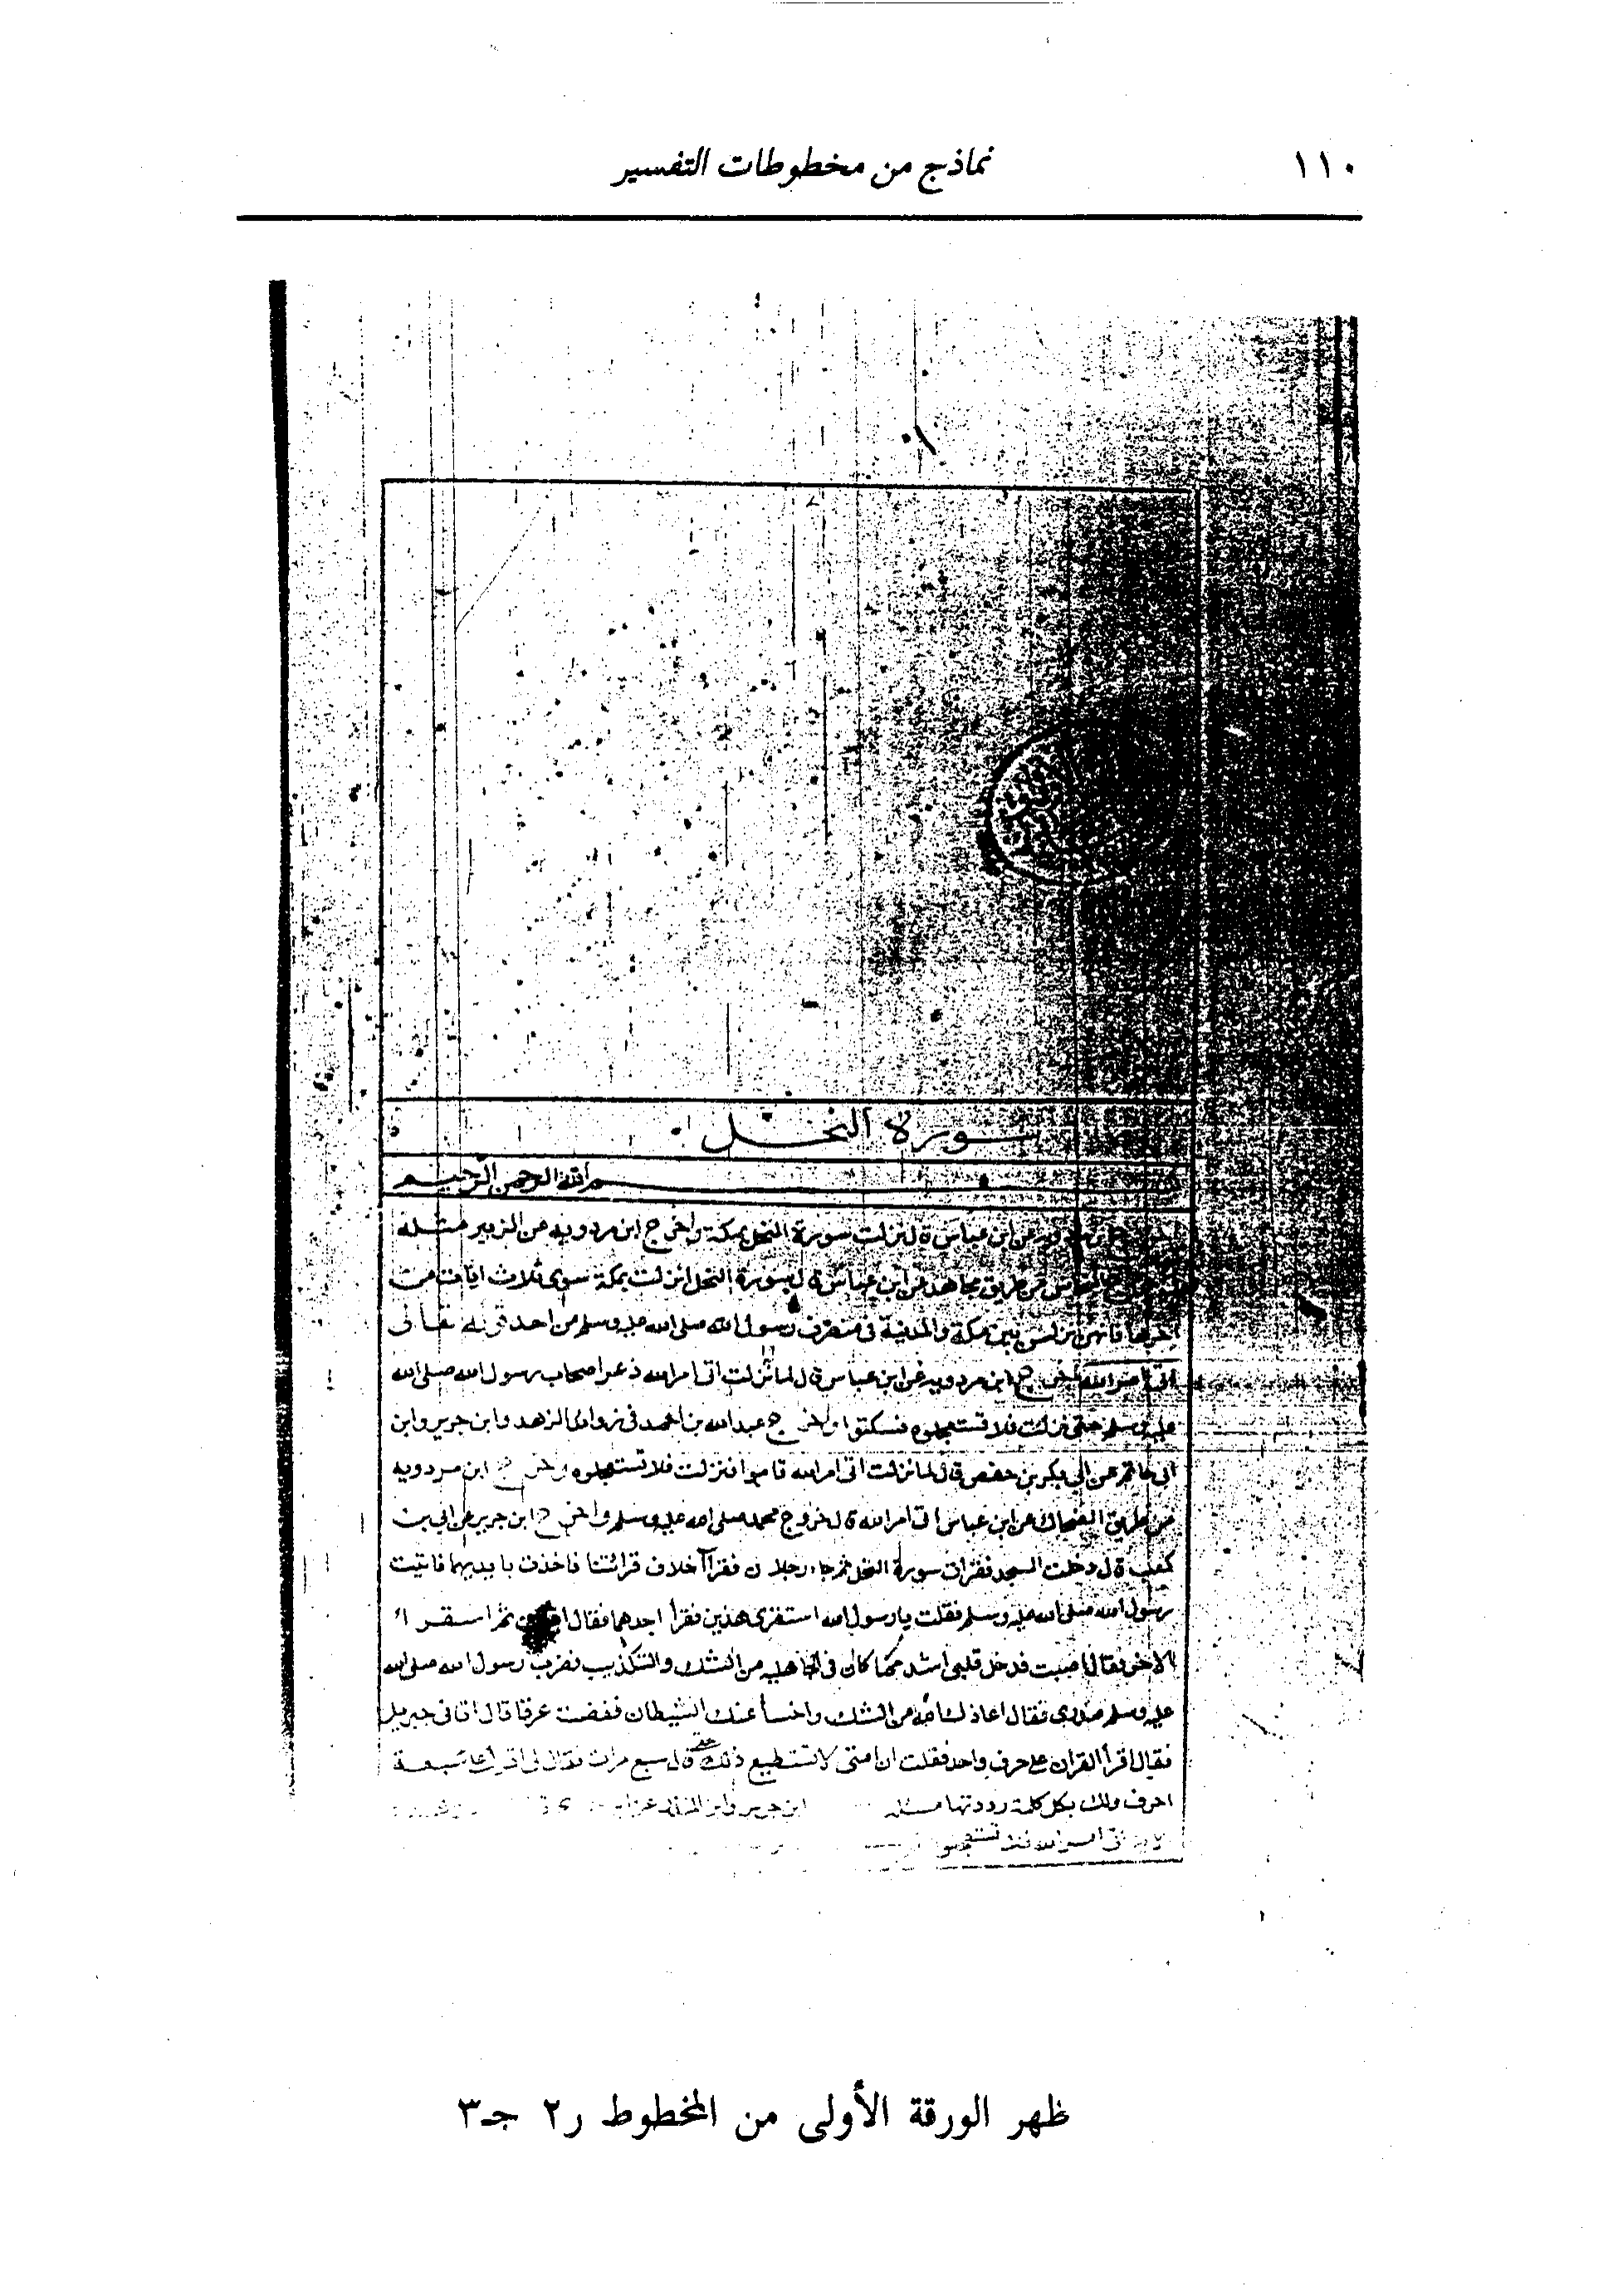 ١١٠
نماذج من مخطوطات التفسير
سورة النحل
بسم الله الرحمن الرحيم
عن ابن عباس قال نزلت سورة النحل بمكة واخرج ابن مردويه عن الزبير مثله
من طريق مجاهد عن ابن عباس قال سورة النحل نزلت بمكة سوى ثلاث ايات من
اخرها فانهن نزلن بين مكة والمدينة في منصرف رسول الله صلى الله عليه وسلم من احد قوله تعالى
اتى امر الله اخرج ابن مردويه عن ابن عباس قال لما نزلت اتى امر الله ذعر اصحاب رسول الله صلى الله
عليه وسلم حتى نزلت فلا تستعجلوه فسكتوا واخرج عبد الله بن احمد في زوائد الزهد وابن جرير وابن
ابي حاتم عن ابي بكر بن حفص قال لما نزلت اتى امر الله قاموا فنزلت فلا تستعجلوه واخرج ابن مردويه
من طريق الضحاك عن ابن عباس اتى امر الله قال خروج محمد صلى الله عليه وسلم واخرج ابن جرير عن ابي بن
كعب قال دخلت المسجد فقرات سورة النحل ثم جاء رجلان فقرآ خلاف قرائتنا فاخذت بايديهما فاتيت
رسول الله صلى الله عليه وسلم فقلت يا رسول الله استقرى هذين فقرأ احدهما فقال ثم استقرأ
الاخر فقال اصبت فدخل قلبي اشد مما كان في الجاهلية من الشك والتكذيب فضرب رسول الله صلى الله
عليه وسلم صدرى فقال اعاذك الله من الشك واخسأ عنك الشيطان ففضت عرقا قال اتانى جبريل
فقال اقرأ القران على حرف واحد فقلت ان امتى لا تستطيع ذلك حتى قال سبع مرات فقال لى اقرأ على سبعة
احرف ولك بكل كلمة رددتها مسئلة ابن جرير وابن المنذر عن ابن
امر الله فلا تستعجلوه
ظهر الورقة الأولى من المخطوط ر٢ جـ٣